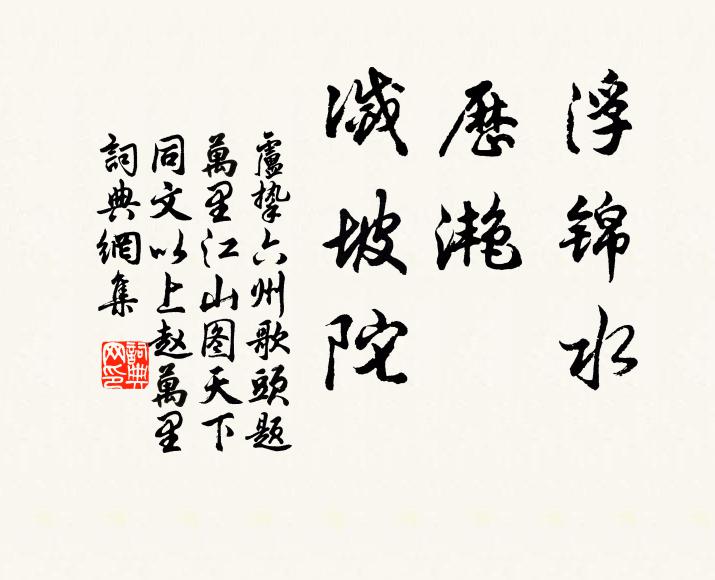 浮锦水
曆滟
滅坡陀
盧挚六州歌頭题
萬里江山图天下
同文以上赵萬里
詞典網集
詞典网印